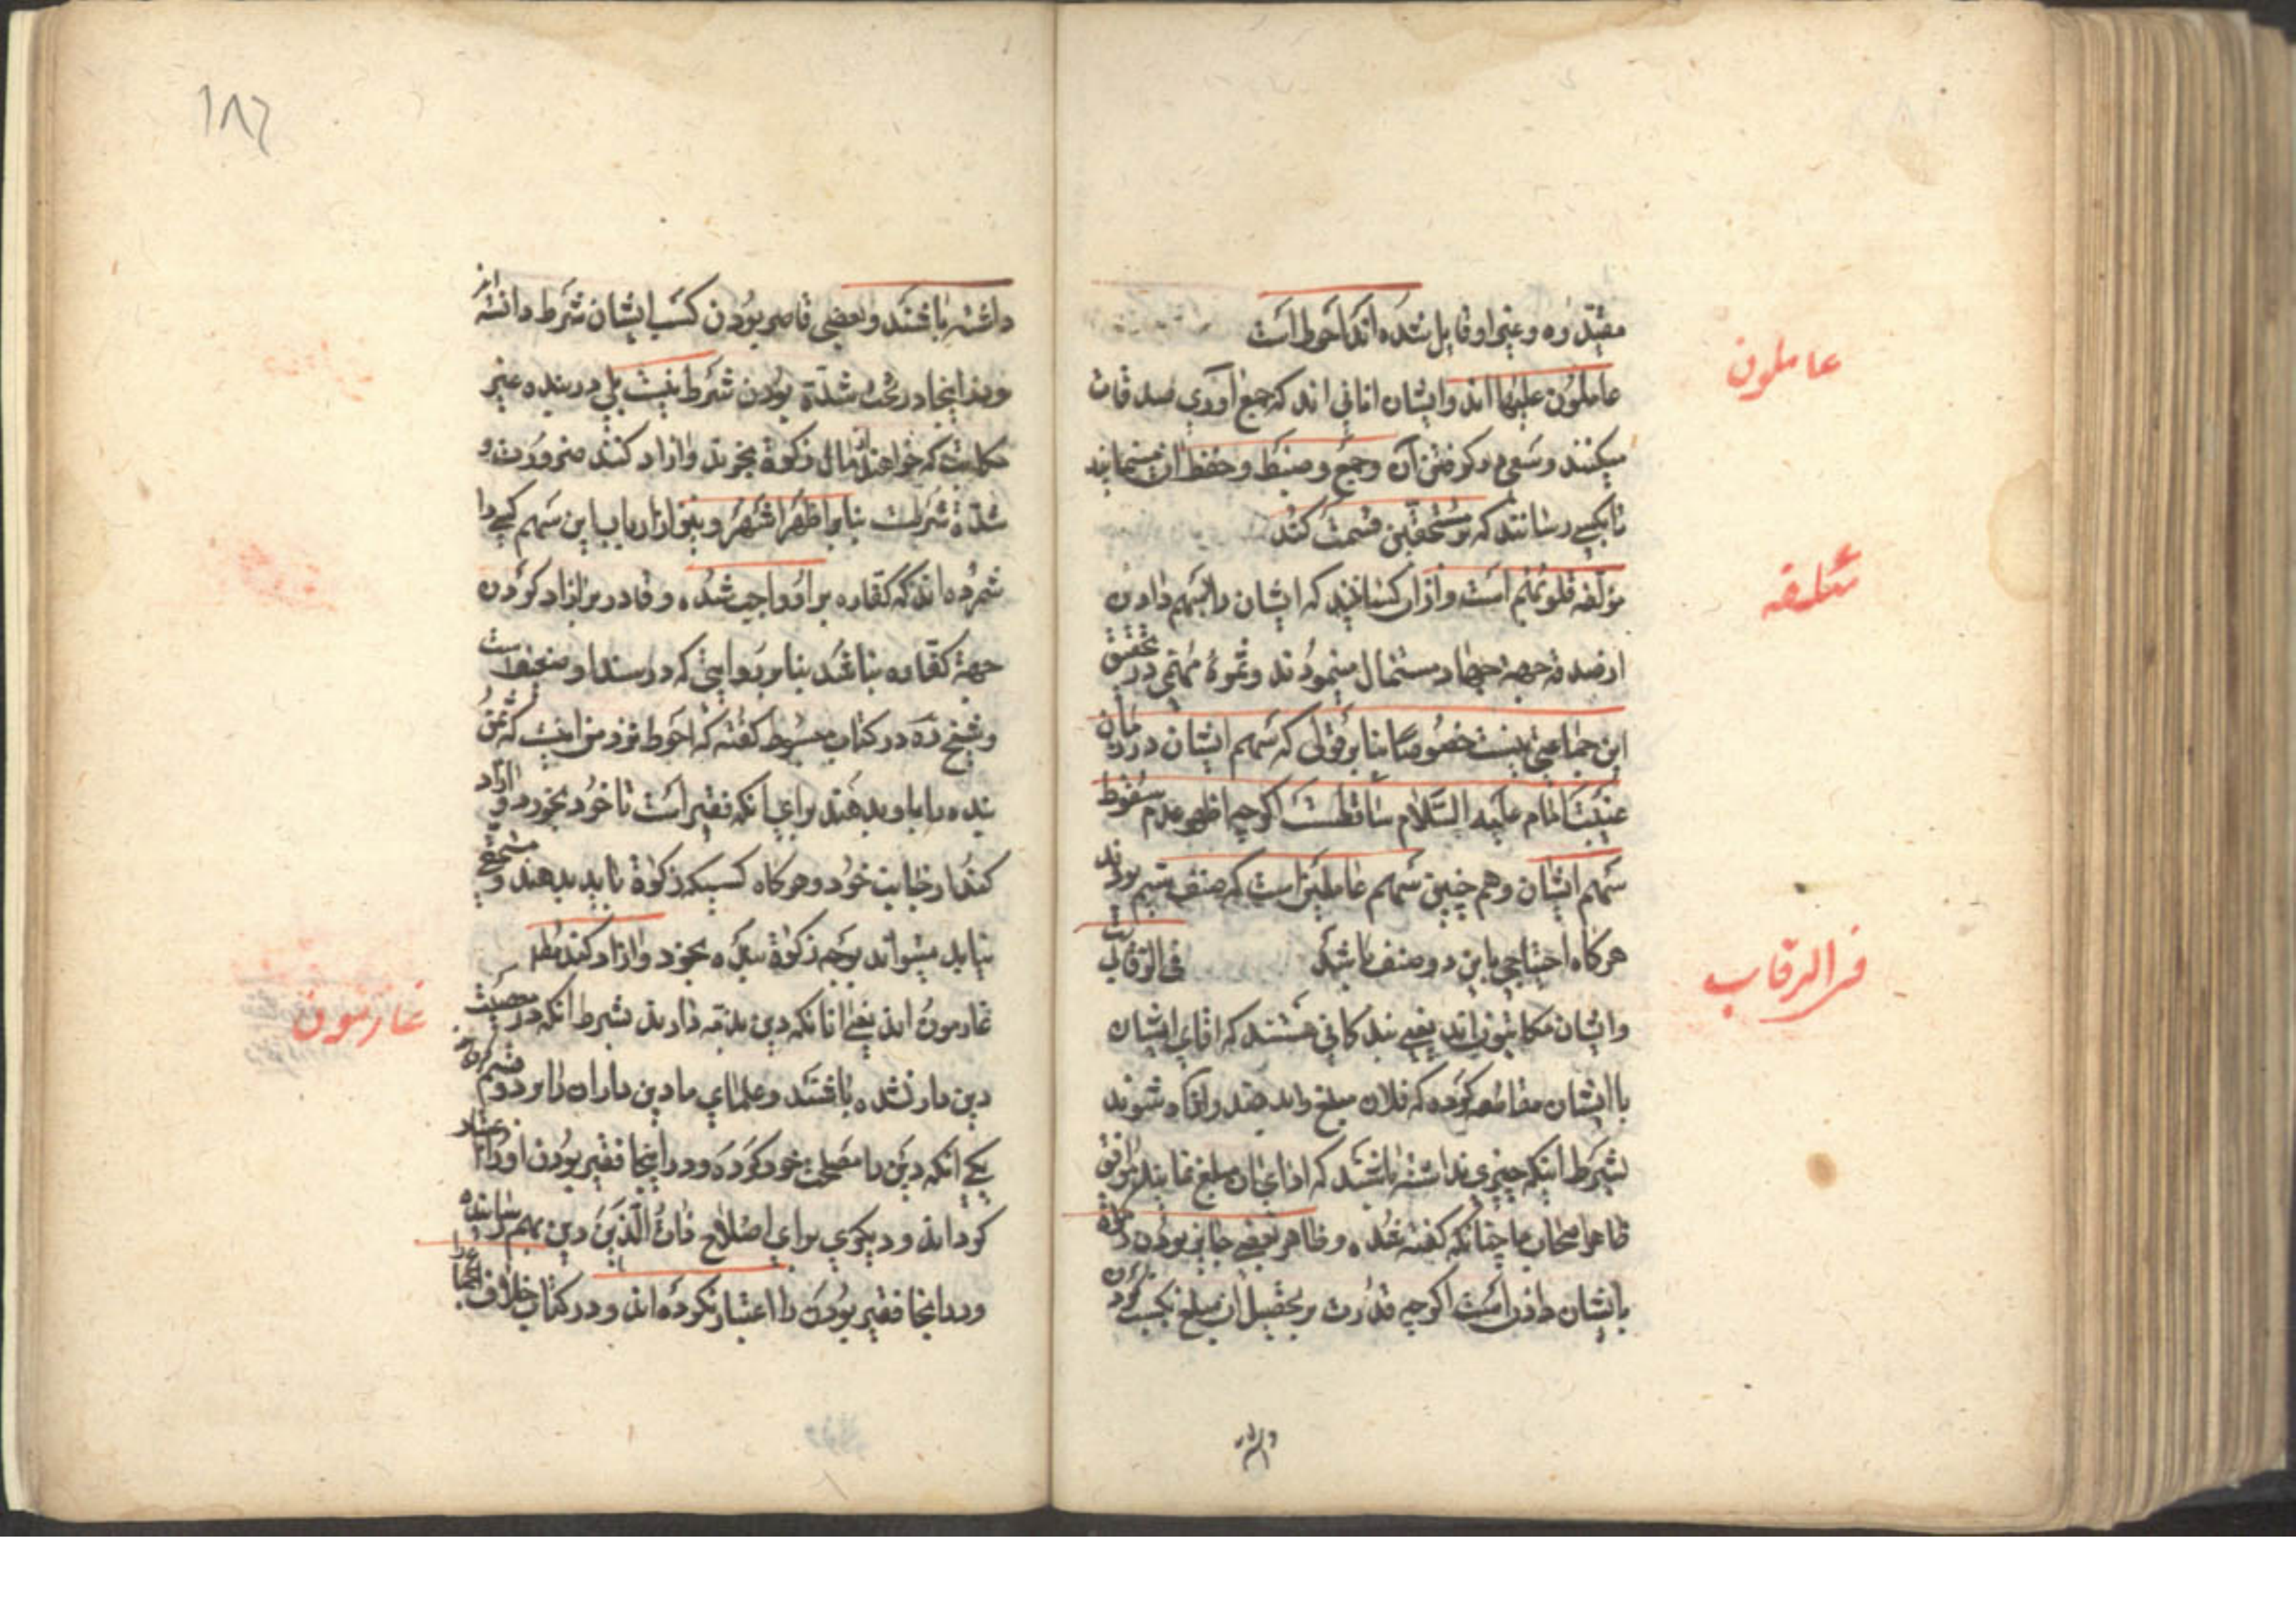 مفید ره و غیر او قایل شده اند احوط است
عاملون
عاملون علیها اند و ایشان انانی اند که جمع آوری صدقات
میکنند و سعی در کرفتن آن و جمع و ضبط و حفظ ان مینمایند
تا بکسی رسانند که بر مستحقین قسمت کند
مؤلفه قلوبهم است و از ان کسانیند که ایشان را بسهم دادن
از صدقه جهة جهاد مستمال مینمودند و ثمرهٔ مهمی در تحقیق
این جماعتی نیست خصوصا بنا بر قولی که سهم ایشان در زمان
غیبت امام علیه السلام ساقطست اکرچه اظهر عدم سقوط
سهم ایشان و هم چنین سهم عاملین است که صنف سیم بودند
هرکاه احتیاجی باین دو صنف باشد فی الرقاب
فی الرقاب
و ایشان مکاتبون اند یعنی بندکانی هستند که اقای ایشان
با ایشان مقاطعه کرده که فلان مبلغ را بدهند و ازاد شوند
بشرط اینکه چیزی نداشته باشند که ادای ان مبلغ نمایند موافق
ظاهر اصحاب ما چنانکه کفته شده و ظاهر بعضی جایز بودن زکوة
بایشان دادن است اکرچه قدرت بر تحصیل ان مبلغ بکسب کردن
داشته
۱۸۶
داشته باشند و بعضی قاصر بودن کسب ایشان شرط دانسته اند
و بند اینجا در تحت شدة بودن شرط نیست بلی در بنده غیر
مکاتب که خواهند از مال زکوة بخرند و ازاد کنند ضرورت و
شدة شرطست بنا بر اظهر اشهر و نیز از ارباب این سهم کسی را
شمرده اند که کفاره بر او واجب شده و قادر بر ازاد کردن
جهة کفاره نباشد بنا بر روایتی که در سند او ضعف است
و شیخ ره در کتاب مبسوط کفته که احوط نزد من اینست که ثمن
بنده را باو بدهند برای انکه فقیر است تا خود بخرد و ازاد
کند از جانب خود و هرکاه کسیکه زکوة باید بدهند و مستحقی
نیابد میتواند بوجه زکوة بنده بخرد و ازاد کند مطلقا
غارمون
غارمون اند یعنی انانکه دین بذمه دارند بشرط انکه در معصیت
دین دار نشده باشند و علمای ما دین داران را بر دو قسم کرده اند
یکی انکه دین را مصلحت خود کرده و در اینجا فقیر بودن او را اعتبار
کرده اند و دیکری برای اصلاح ذات البین دین بهم رسانیده
و در اینجا فقیر بودن را اعتبار نکرده اند و در کتاب خلاف